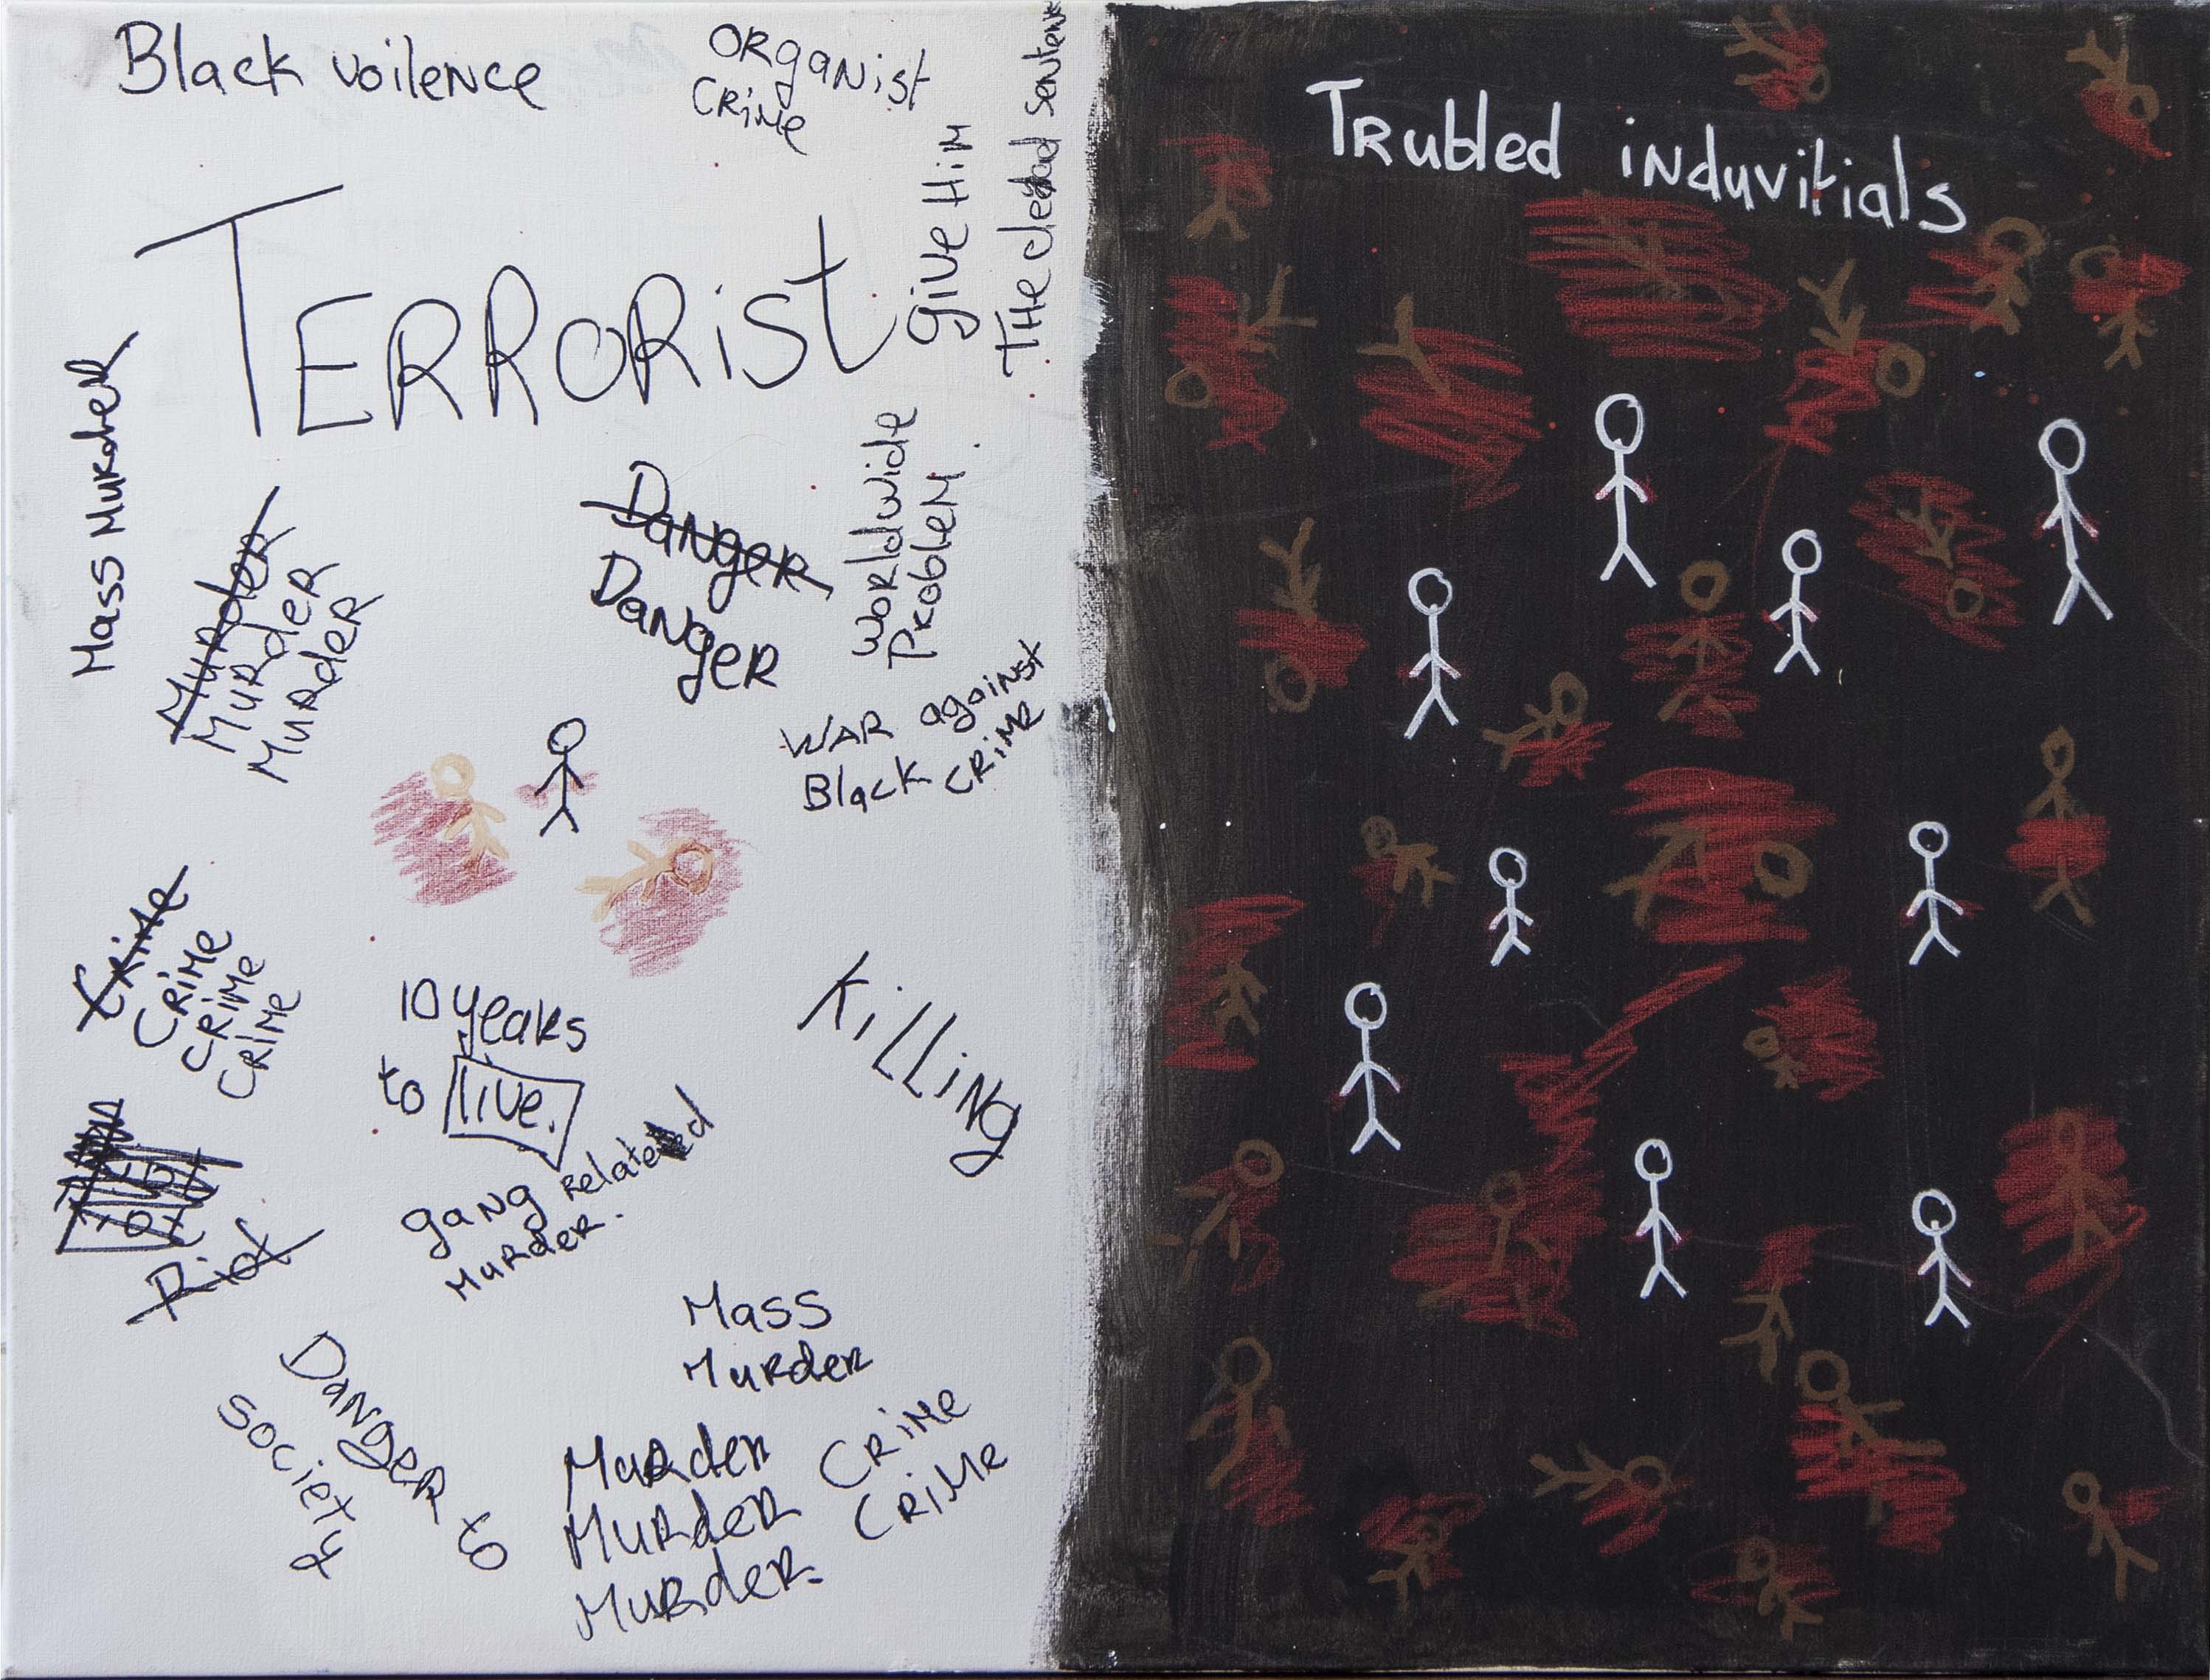 Black voilence
ORganist
CRiMe
give HiM
THe dead sentenc
TERRORist
Mass MuRdeR
Murder
MuRdeR
MuRdeR
Danger
DangeR
WoRldwide
PRobleM.
WAR against
Black CRiMe
CRiMe
CRiMe
CRiMe
CRiMe
10 yeaRs
to live.
KilliNg
Riot
gaNg Related
MuRdeR.
Mass
MuRdeR
DaNgeR to
society
MuRdeR
MuRdeR
MuRdeR.
CRiMe
CRiMe
TRubled iNduvitials